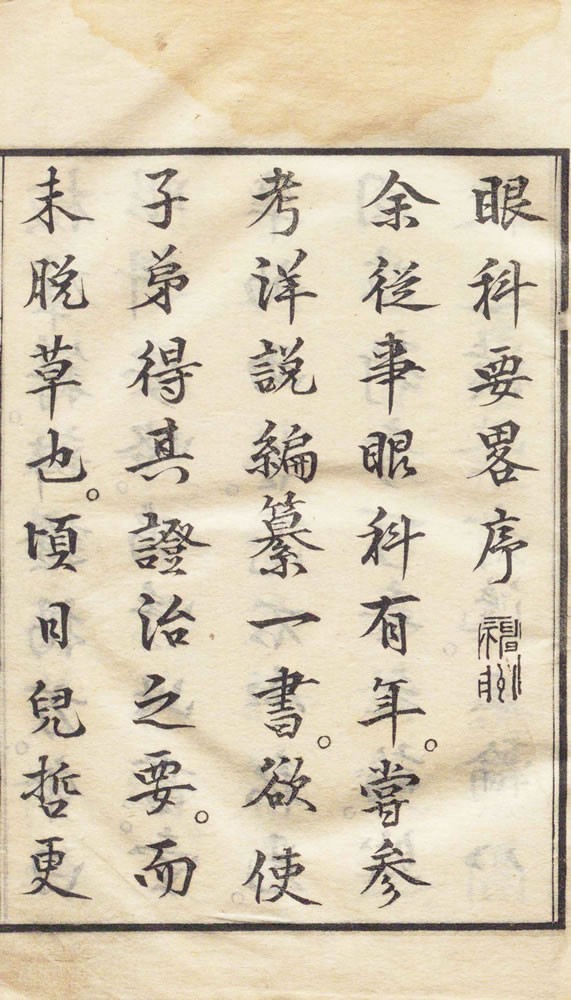 眼科要畧序
余從事眼科有年。嘗参
考洋說編纂一書。欲使
子弟得其證治之要。而
未脫草也。頃日兒哲更